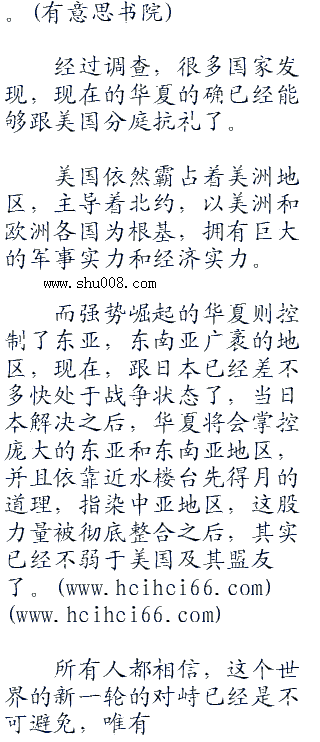 。(有意思书院)
经过调查，很多国家发
现，现在的华夏的确已经能
够跟美国分庭抗礼了。
美国依然霸占着美洲地
区，主导着北约，以美洲和
欧洲各国为根基，拥有巨大
的军事实力和经济实力。
www.shu008.com
而强势崛起的华夏则控
制了东亚，东南亚广袤的地
区，现在，跟日本已经差不
多快处于战争状态了，当日
本解决之后，华夏将会掌控
庞大的东亚和东南亚地区，
并且依靠近水楼台先得月的
道理，指染中亚地区，这股
力量被彻底整合之后，其实
已经不弱于美国及其盟友
了。(www.hcihci66.com)
(www.hcihci66.com)
所有人都相信，这个世
界的新一轮的对峙已经是不
可避免，唯有